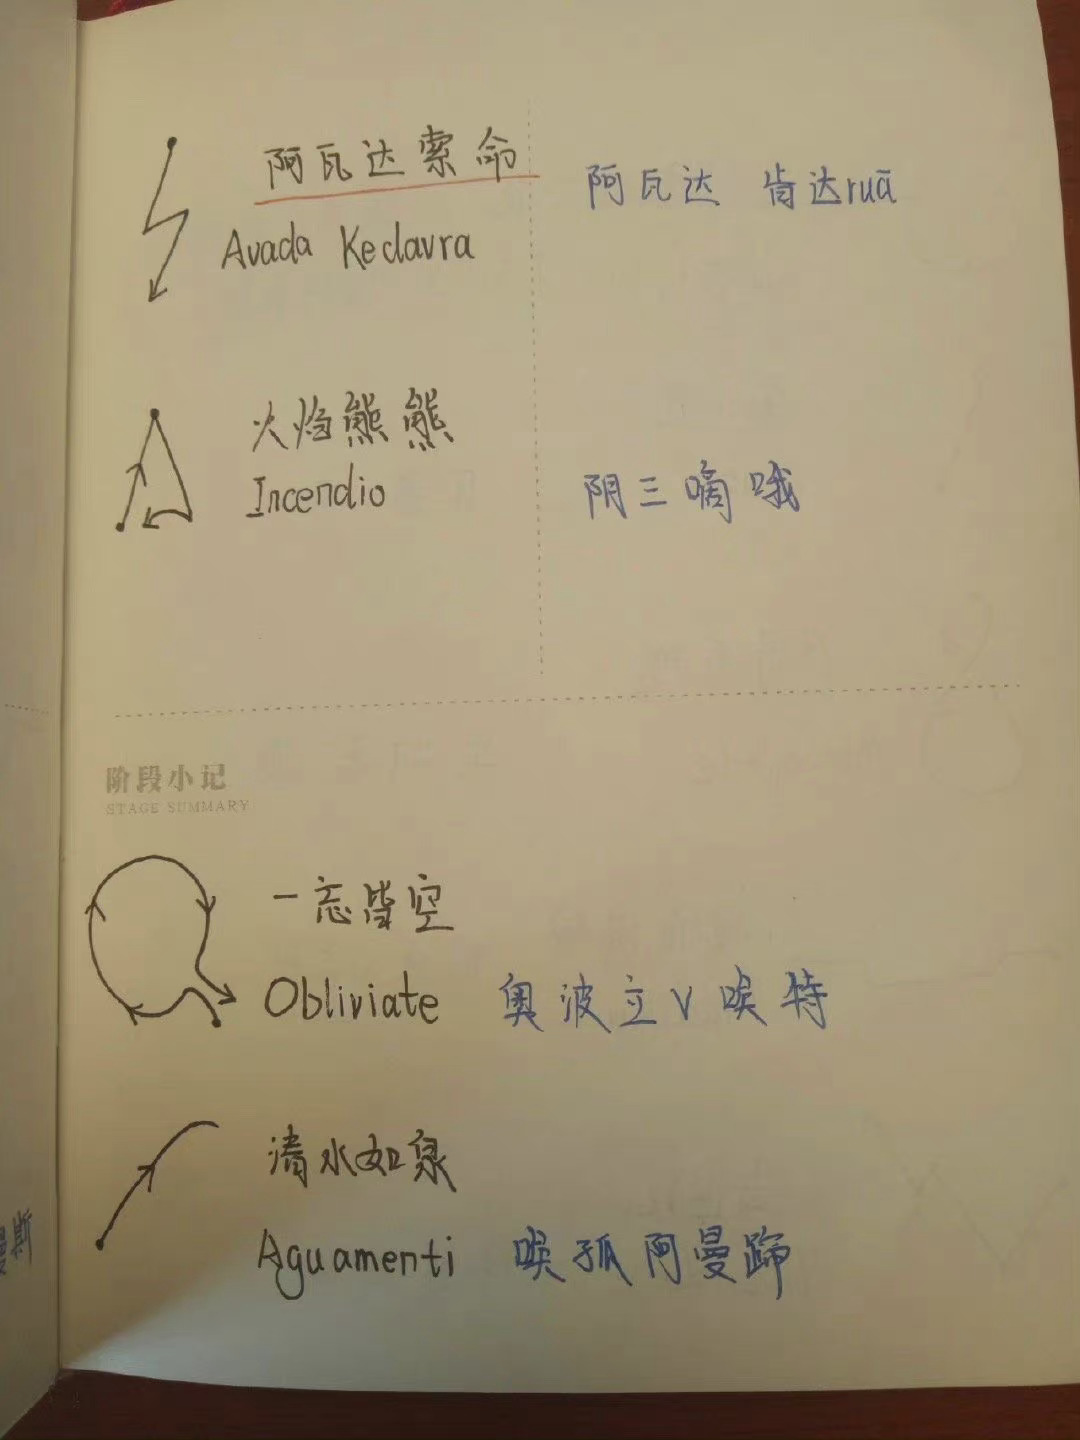 阿瓦达索命
阿瓦达 肯达ruā
Avada Kedavra
火焰熊熊
Incendio
阴三嘀哦
阶段小记
STAGE SUMMARY
一忘皆空
Obliviate 奥波立V唉特
清水如泉
Aguamenti 唉孤阿曼蹄
斯